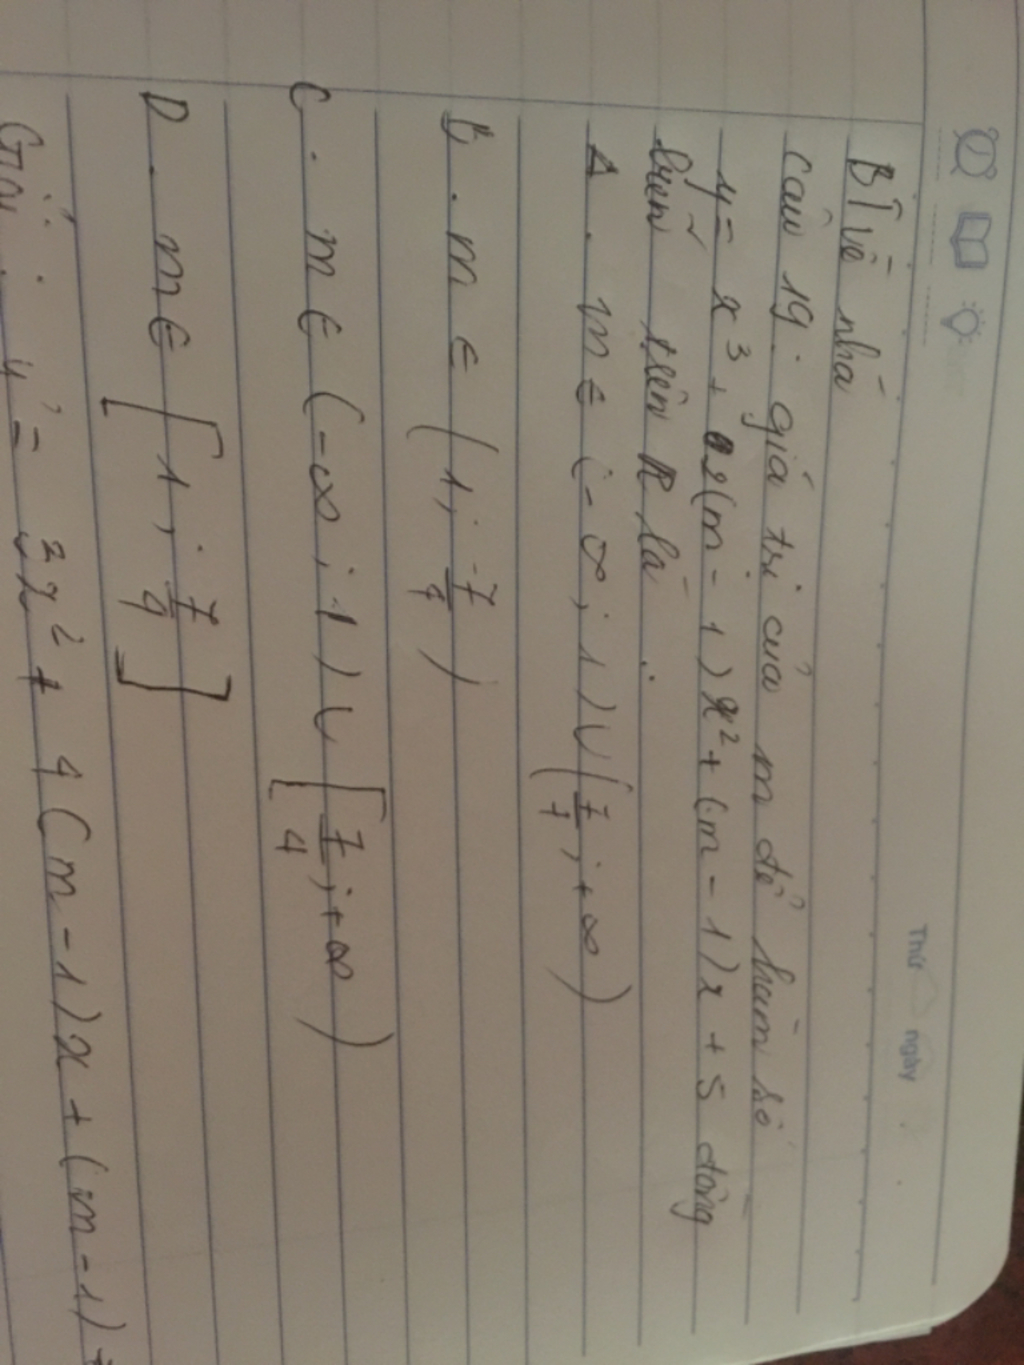 Thứ ngày
BT về nhà
Câu 19: giá trị của m để hàm số
y = x³ + 2(m - 1)x² + (m - 1)x + 5 đồng
biến trên R là .
A. m ∈ (-∞; 1) ∪ (7/4; +∞)
B. m ∈ (1; 7/4)
C. m ∈ (-∞; 1) ∪ [7/4; +∞)
D. m ∈ [1; 7/4]
Giải: y' = 3x² + 4(m - 1)x + (m - 1)